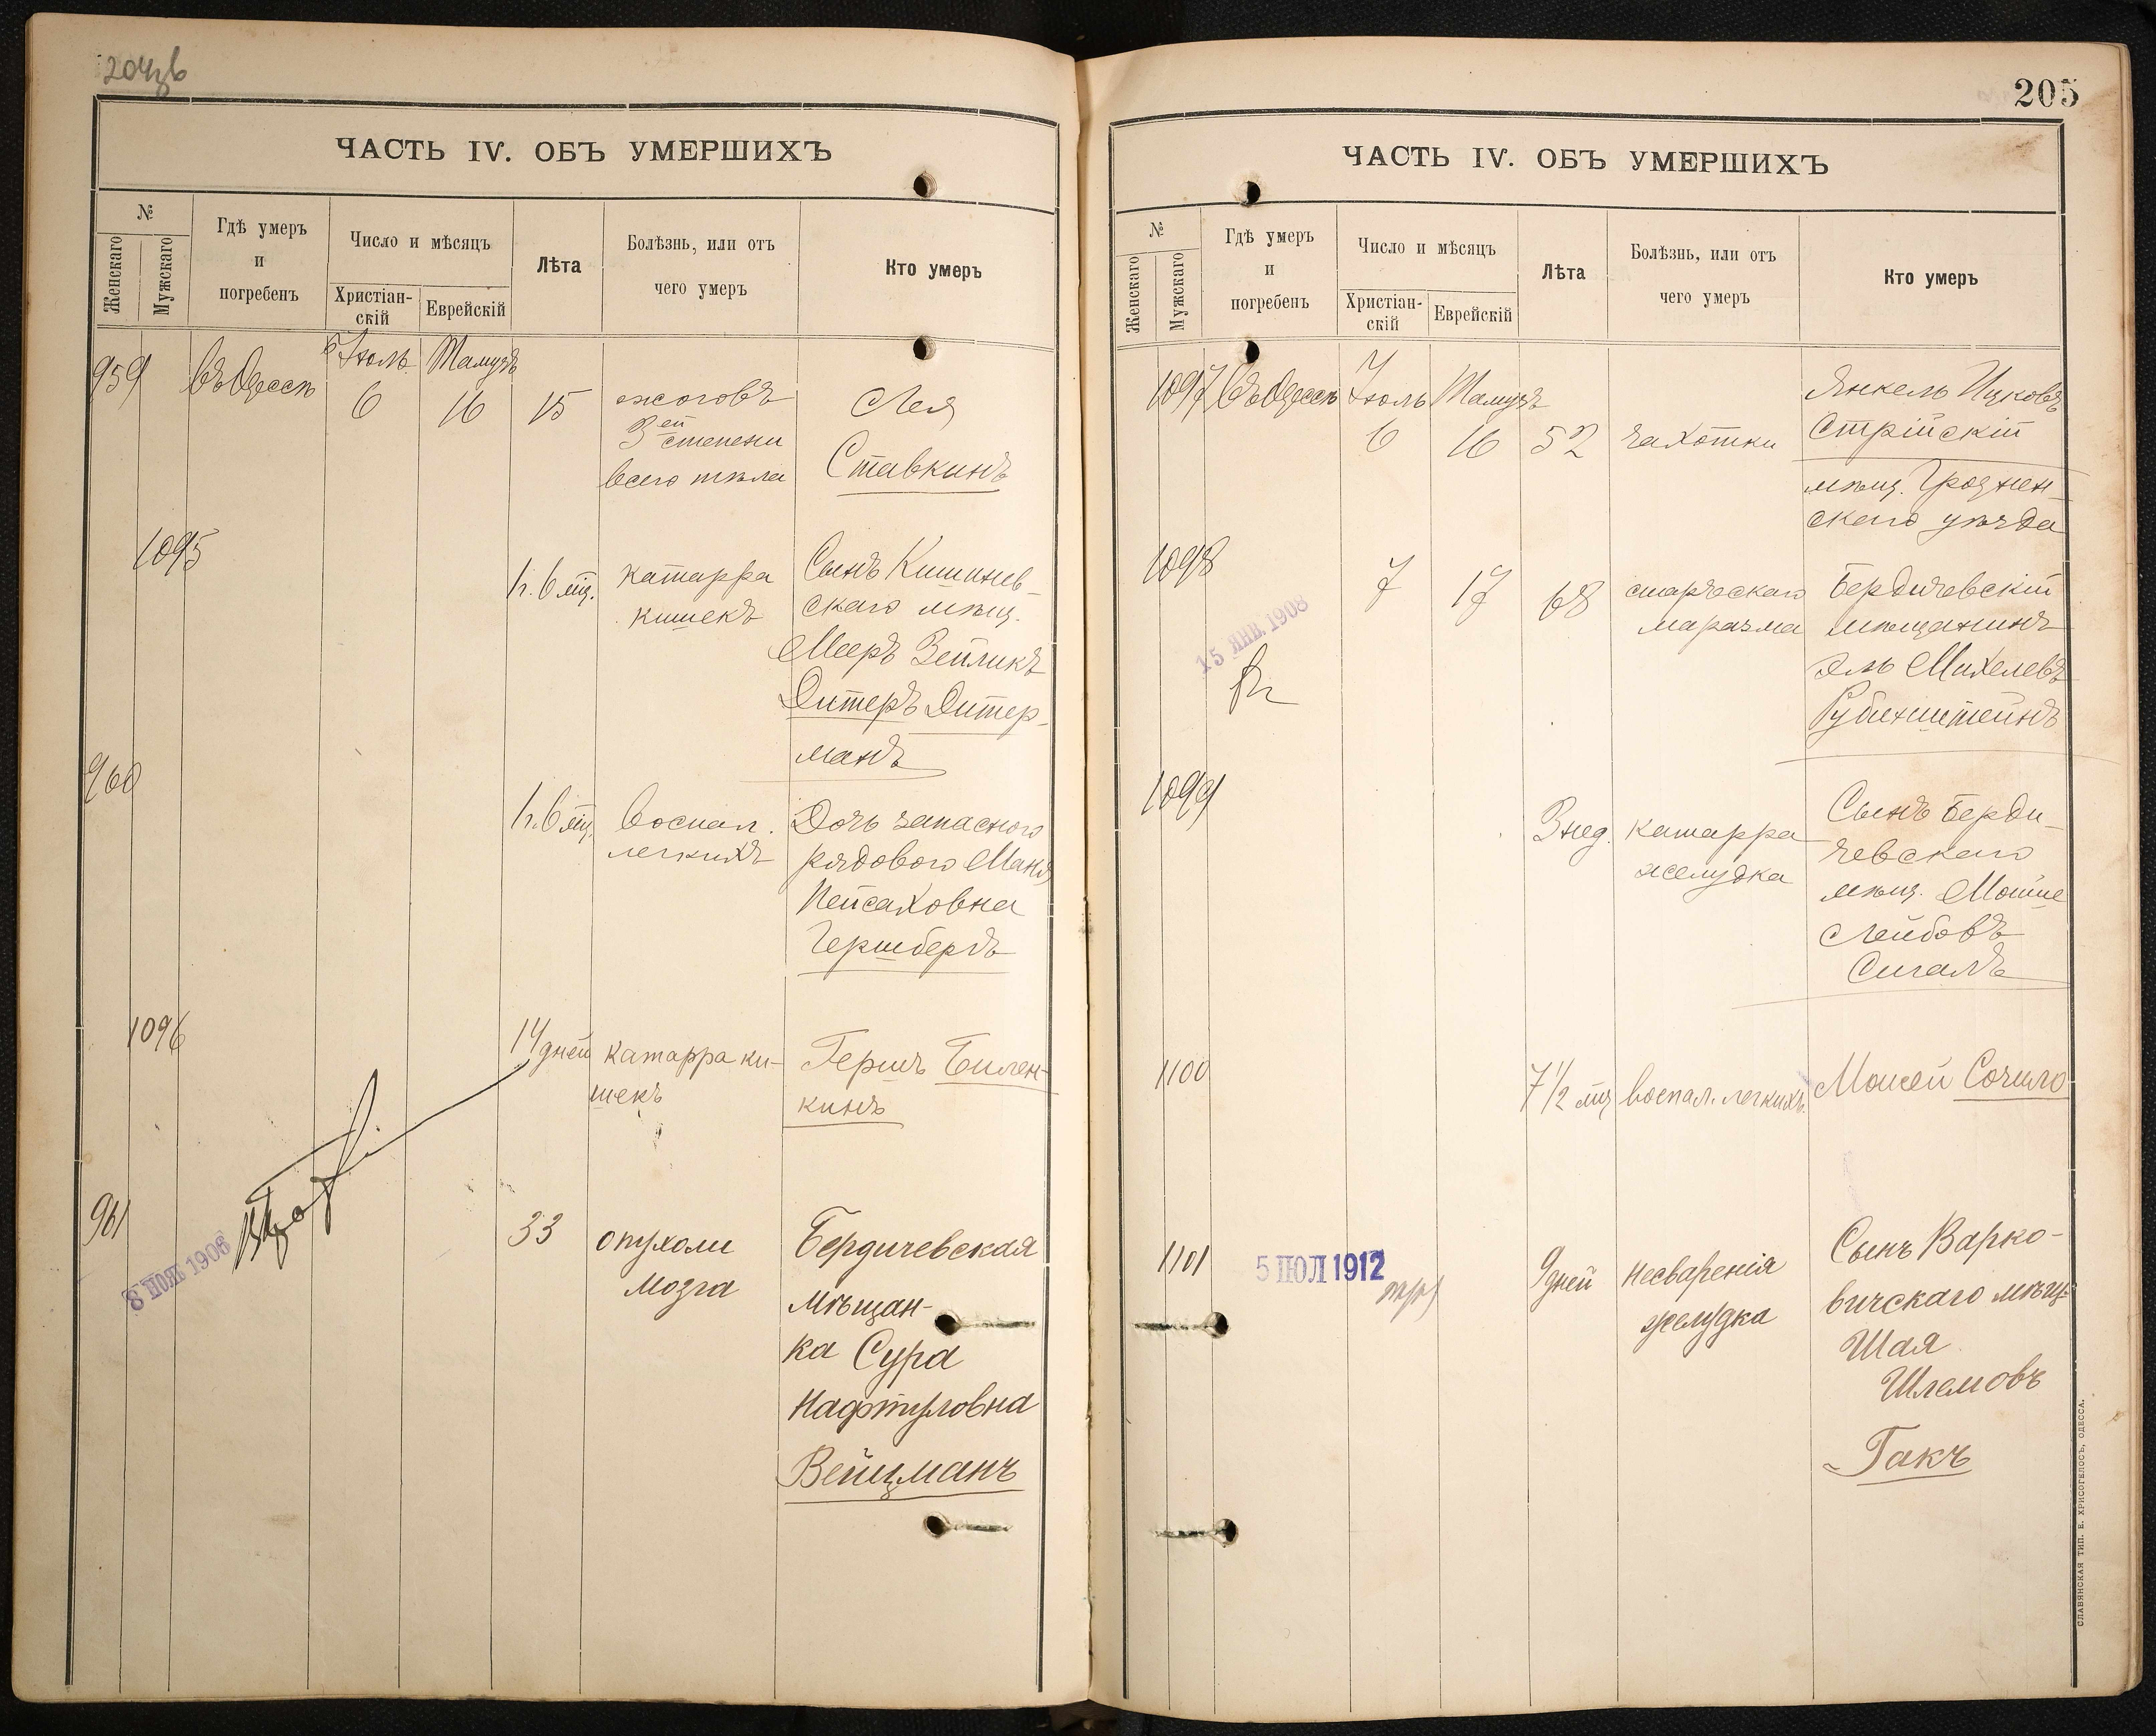 204
ЧАСТЬ IV. ОБЪ УМЕРШИХЪ
№
Женскаго
Мужскаго
Гдѣ умеръ
и
погребенъ
Число и мѣсяцъ
Христіан-
скій
Еврейскій
Лѣта
Болѣзнь, или отъ
чего умеръ
Кто умеръ
959 въ Одессѣ Іюль Тамузъ
6 16 15 ожоговъ Лея
3ей степени Ставкинъ
всего тѣла
1095
1 г. 6 мц. катарра Сынъ Кишинев-
кишекъ скаго мѣщ.
Мееръ Зейликъ
Дитеръ Дитер-
манъ
960
1 г. 6 мц. воспал. Дочь запасного
легкихъ рядового Маня
Пейсаховна
Гершбергъ
1096
14 дней катарра ки- Гершъ Билен-
шекъ кинъ
961
33 опухоли Бердичевская
мозга мѣщан-
ка Сура
Нафтуловна
Вейцманъ
1906
205
ЧАСТЬ IV. ОБЪ УМЕРШИХЪ
№
Женскаго
Мужскаго
Гдѣ умеръ
и
погребенъ
Число и мѣсяцъ
Христіан-
скій
Еврейскій
Лѣта
Болѣзнь, или отъ
чего умеръ
Кто умеръ
1097 въ Одессѣ Іюль Тамузъ Янкель Ицковъ
6 16 52 чахотки Стрійскій
мѣщ. Гроднен-
скаго уѣзда
1098
7 17 68 старческаго Бердичевскій
маразма мѣщанинъ
Эль Михелевъ
Рубинштейнъ
15 ЯНВ. 1908
1099
3 нед. катарра Сынъ Берди-
желудка чевскаго
мѣщ. Мойше
Лейбовъ
Сигалъ
1100
7 1/2 мц воспал. легкихъ. Моисей Сочило
1101 5 ІЮЛ 1912
9 дней несваренія Сынъ Варко-
желудка вичскаго мѣщ.
Шая
Шлемовъ
Гакъ
СЛАВЯНСКАЯ ТИП. Е. ХРИСОГЕЛОСЪ, ОДЕССА.